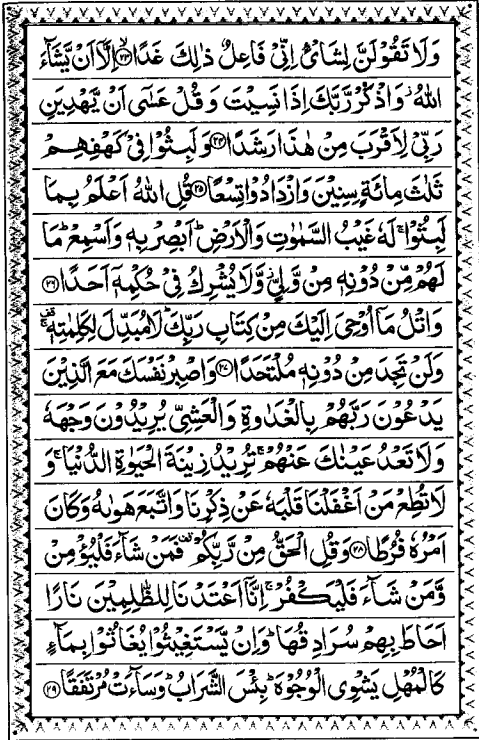 وَلَا تَقُوْلَنَّ لِشَایْءٍ اِنِّیْ فَاعِلٌ ذٰلِكَ غَدًا ﴿۲۳﴾ اِلَّاۤ اَنْ یَّشَآءَ
اللّٰهُ ؗ وَاذْكُرْ رَّبَّكَ اِذَا نَسِیْتَ وَ قُلْ عَسٰۤی اَنْ یَّهْدِیَنِ
رَبِّیْ لِاَقْرَبَ مِنْ هٰذَا رَشَدًا ﴿۲۴﴾ وَ لَبِثُوْا فِیْ كَهْفِهِمْ
ثَلٰثَ مِائَةٍ سِنِیْنَ وَازْدَادُوْا تِسْعًا ﴿۲۵﴾ قُلِ اللّٰهُ اَعْلَمُ بِمَا
لَبِثُوْا ۚ لَهٗ غَیْبُ السَّمٰوٰتِ وَالْاَرْضِ ؕ اَبْصِرْ بِهٖ وَاَسْمِعْ ؕ مَا
لَهُمْ مِّنْ دُوْنِهٖ مِنْ وَّلِیٍّ ؗ وَّلَا یُشْرِكُ فِیْ حُكْمِهٖۤ اَحَدًا ﴿۲۶﴾
وَاتْلُ مَاۤ اُوْحِیَ اِلَیْكَ مِنْ كِتَابِ رَبِّكَ ؕ لَامُبَدِّلَ لِكَلِمٰتِهٖ ۫ۚ
وَلَنْ تَجِدَ مِنْ دُوْنِهٖ مُلْتَحَدًا ﴿۲۷﴾ وَاصْبِرْ نَفْسَكَ مَعَ الَّذِیْنَ
یَدْعُوْنَ رَبَّهُمْ بِالْغَدٰوةِ وَالْعَشِیِّ یُرِیْدُوْنَ وَجْهَهٗ
وَلَا تَعْدُ عَیْنٰكَ عَنْهُمْ ۚ تُرِیْدُ زِیْنَةَ الْحَیٰوةِ الدُّنْیَا ۚ وَ
لَا تُطِعْ مَنْ اَغْفَلْنَا قَلْبَهٗ عَنْ ذِكْرِنَا وَاتَّبَعَ هَوٰىهُ وَكَانَ
اَمْرُهٗ فُرُطًا ﴿۲۸﴾ وَقُلِ الْحَقُّ مِنْ رَّبِّكُمْ ۫ فَمَنْ شَآءَ فَلْیُؤْمِنْ
وَّمَنْ شَآءَ فَلْیَكْفُرْ ۙ اِنَّاۤ اَعْتَدْنَا لِلظّٰلِمِیْنَ نَارًا ۙ
اَحَاطَ بِهِمْ سُرَادِقُهَا ؕ وَاِنْ یَّسْتَغِیْثُوْا یُغَاثُوْا بِمَآءٍ
كَالْمُهْلِ یَشْوِی الْوُجُوْهَ ؕ بِئْسَ الشَّرَابُ ؕ وَسَآءَتْ مُرْتَفَقًا ﴿۲۹﴾